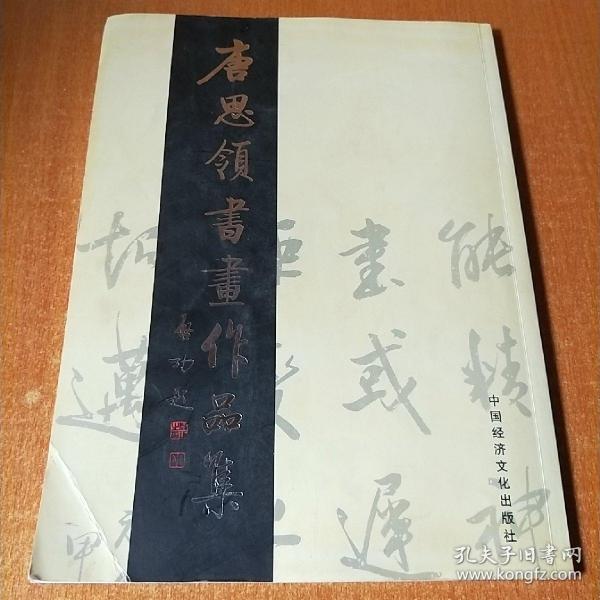 唐思領書畫作品集
啓功題
能精神
書或遲
中国经济文化出版社
孔夫子旧书网
www.kongfz.com